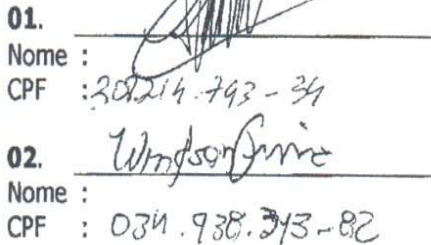 01.
Nome :
CPF : 201214.793-34
02. Windson
Nome :
CPF : 034.938.313-82